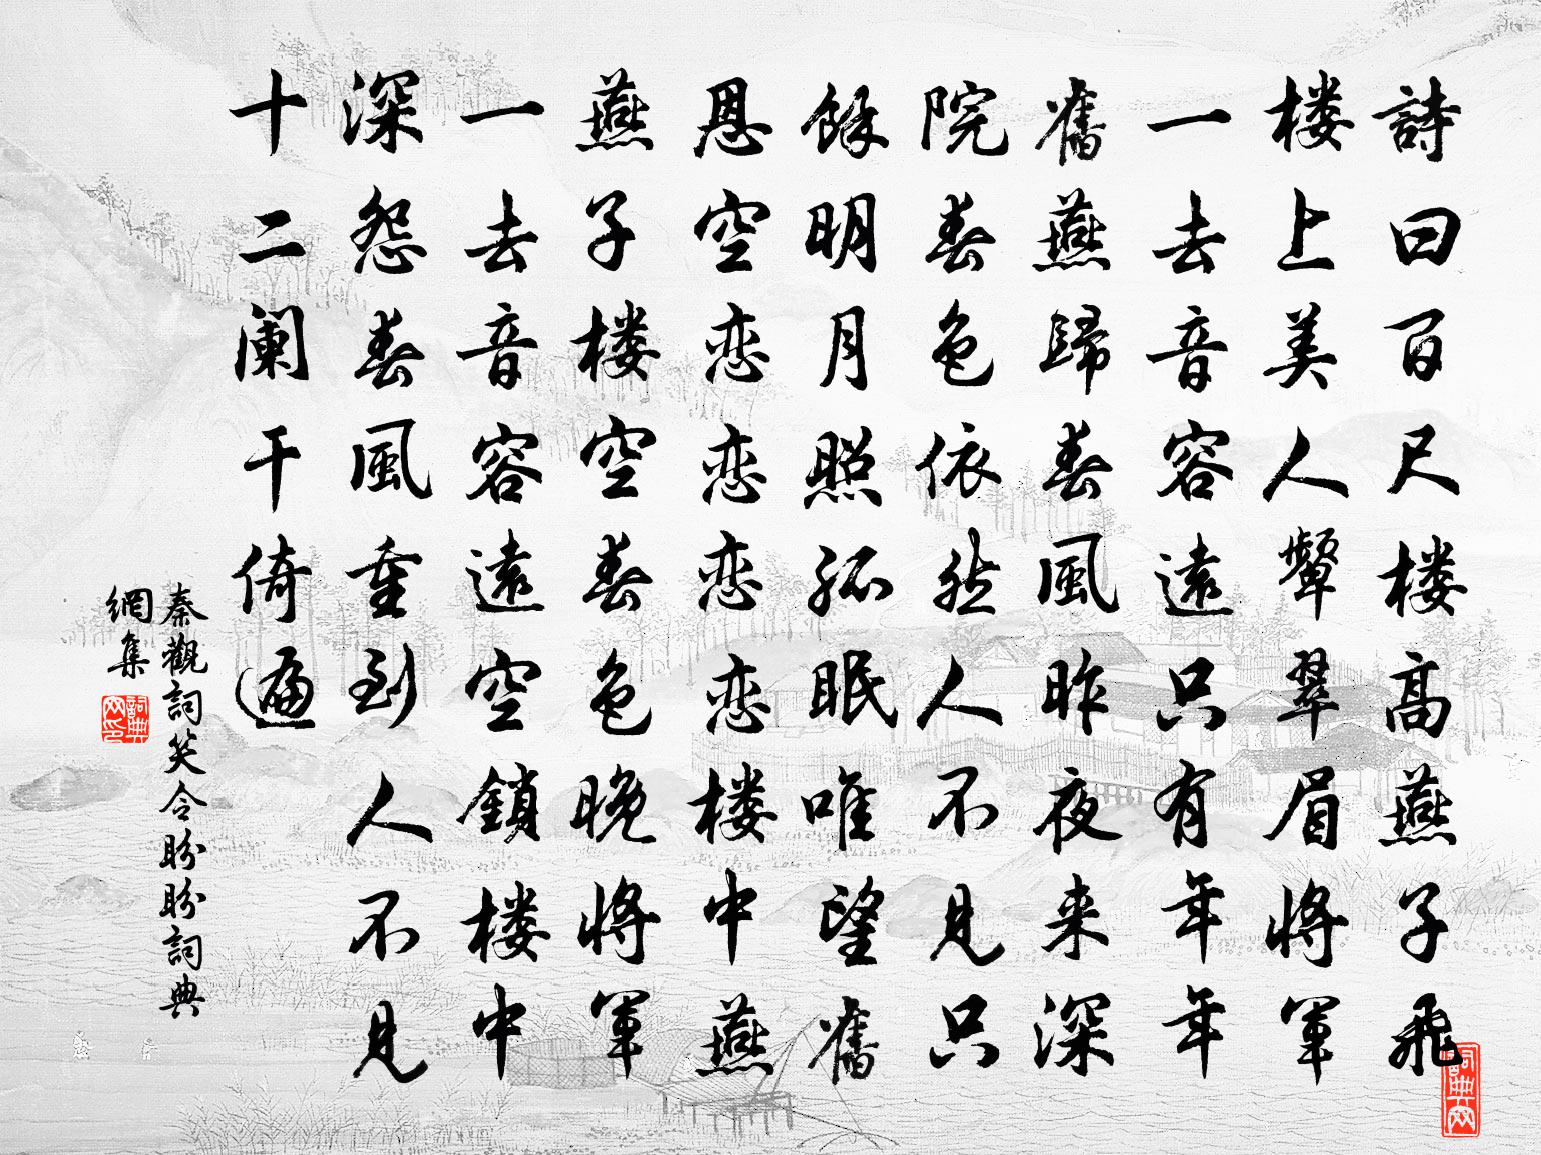 詩曰百尺楼高燕子飛
楼上美人顰翠眉將軍
一去音容遠只有年年
舊燕歸春風昨夜来深
院春色依然人不見只
餘明月照孤眠唯望舊
恩空恋恋恋恋楼中燕
燕子楼空春色晚將軍
一去音容遠空鎖楼中
深怨春風重到人不見
十二阑干倚遍
秦觀詞笑令盼盼詞典
網集
詞典网印
詞典网